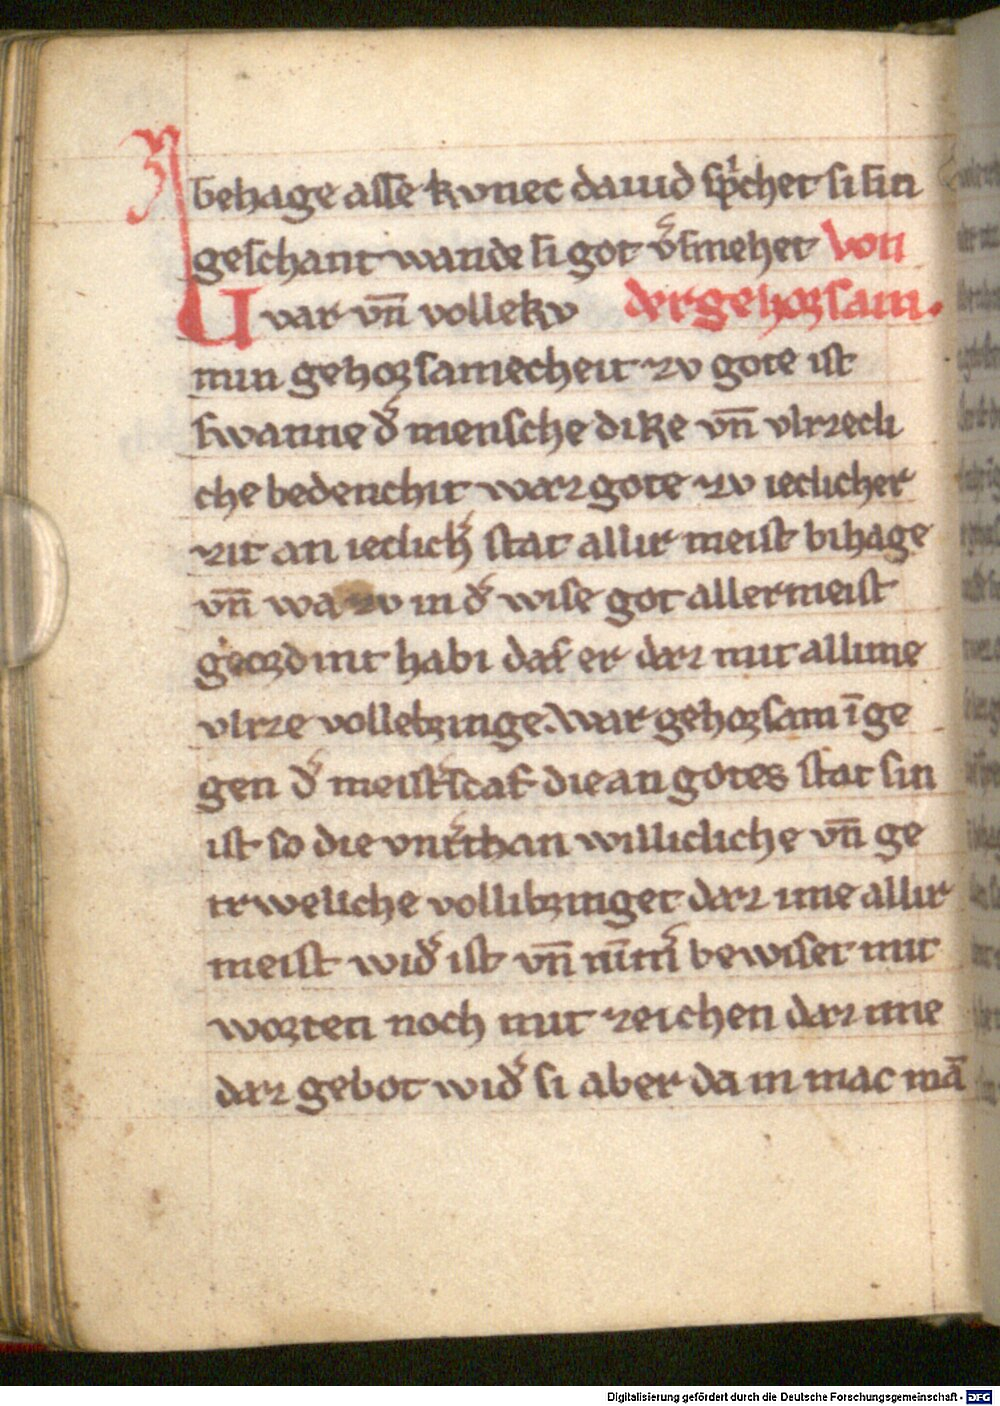 behage asse kvnec dauid sp̄chet si sin
geschant wande si got v͛smehet von
Uvar vn̄ volleku der gehorsam.
min gehorsamecheit zv gote ist
swanne d͛ mensche dike vn̄ vlizecli
che bedenchit waz gote zv ieclicher
zit an ieclich͛ stat allir meist bihage
vn̄ wa zv in d͛ wise got allermeist
geordint habi daf er daz mit allime
vlize vollebringe. War gehorsam ī ge
gen d͛ meist͛scaf die an gotes stat sin
ist so die vnt͛than williclicche vn̄ ge
trweliche vollibringet daz ime allir
meist wid͛ ist vn̄ nim̄͛ bewiset mit
worten noch mit zeichen daz ime
daz gebot wid͛ si aber da in mac mā
Digitalisierung gefördert durch die Deutsche Forschungsgemeinschaft - DFG